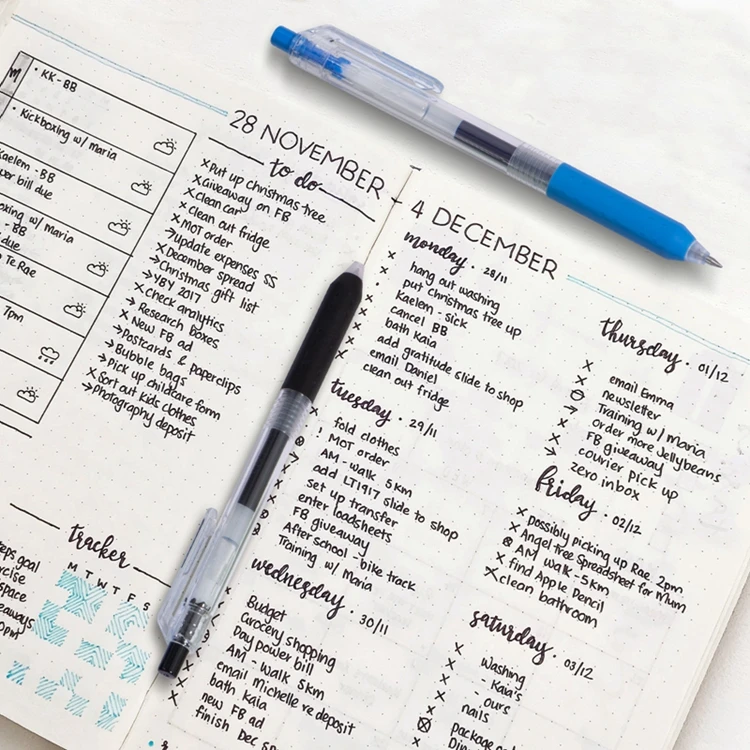 M
• KK - BB
• Kickboxing w/ maria
Kaelem - BB
er bill due
oxing w/ maria
- BB
due
Te Rae
7pm
28 NOVEMBER -
to do
×Put up christmas tree
×Giveaway on FB
×Clean car
×clean out fridge
×MOT order
→update expenses SS
×December spread
→Christmas gift list
→YBY 2017
×Check analytics
→Research boxes
×New FB ad
→Postcards & paperclips
→Bubble bags
→Pick up childcare form
×Sort out kids clothes
→Photography deposit
tracker
M T W T F S
eps goal
rcise
space
eaways
0pm
4 DECEMBER
monday • 28/11
× hang out washing
× put christmas tree up
× Kaelem - sick
× cancel BB
× bath Kaia
× add gratitude slide to shop
× email Daniel
× clean out fridge
tuesday • 29/11
× fold clothes
! MOT order
AM - walk 5km
add LT1917 slide to shop
set up transfer
enter loadsheets
FB giveaway
After school - bike track
Training w/ Maria
wednesday • 30/11
Budget
Grocery shopping
Day power bill
AM - walk 5km
email Michelle re deposit
bath kaia
new FB ad
finish Dec sp
thursday • 01/12
× email Emma
× newsletter
Training w/ maria
→ order more Jellybeans
× FB giveaway
× courier pick up
× zero inbox
friday • 02/12
× possibly picking up Rae 2pm
× Angel tree Spreadsheet for Mum
⊗ AM walk - 5km
× find Apple Pencil
×clean bathroom
saturday • 03/12
× washing
× - Kaia's
× - ours
× nails
package o